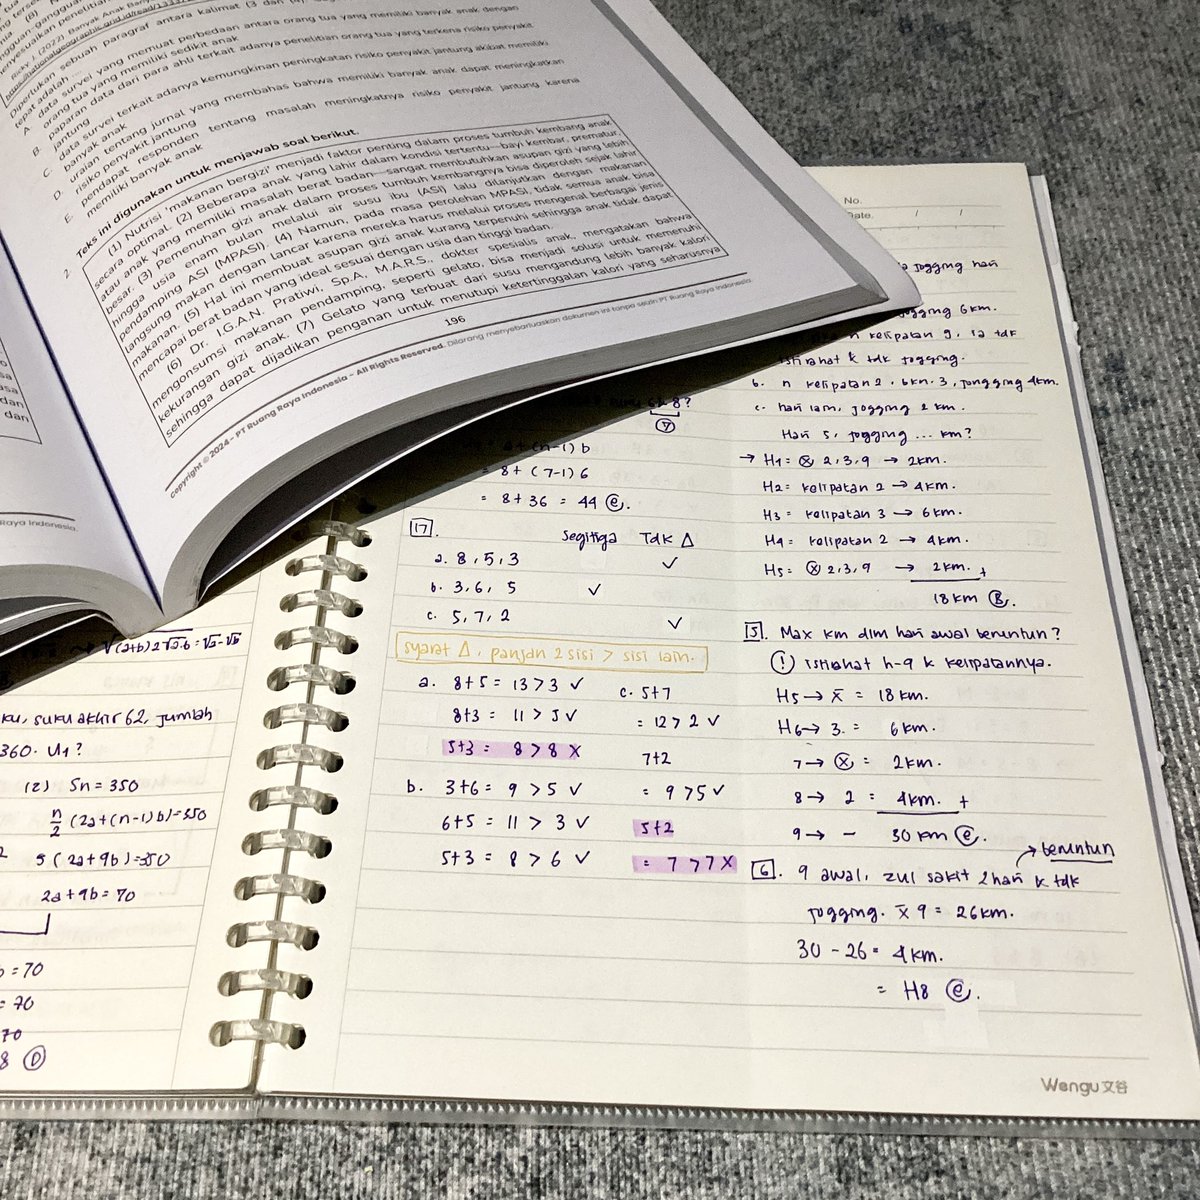 diperlukan sebuah paragraf antara kalimat (3 dan (4).
tepat adalah ...
A. data survei yang memuat perbedaan antara orang tua yang memiliki banyak anak dengan
orang tua yang memiliki sedikit anak
B. paparan data dari para ahli terkait adanya penelitian orang tua yang terkena risiko penyakit
jantung
C. data survei terkait adanya kemungkinan peningkatan risiko penyakit jantung akibat memiliki
banyak anak
D. uraian tentang jurnal yang membahas bahwa memiliki banyak anak dapat meningkatkan
risiko penyakit jantung
E. pendapat responden tentang masalah meningkatnya risiko penyakit jantung karena
memiliki banyak anak
Teks ini digunakan untuk menjawab soal berikut.
2. (1) Nutrisi makanan bergizi menjadi faktor penting dalam proses tumbuh kembang anak
secara optimal. (2) Beberapa anak yang lahir dalam kondisi tertentu—bayi kembar, prematur,
atau anak yang memiliki masalah berat badan—sangat membutuhkan asupan gizi yang lebih
besar. (3) Pemenuhan gizi anak dalam proses tumbuh kembangnya bisa diperoleh sejak lahir
hingga usia enam bulan melalui air susu ibu (ASI) lalu dilanjutkan dengan makanan
pendamping ASI (MPASI). (4) Namun, pada masa perolehan MPASI, tidak semua anak bisa
langsung makan dengan lancar karena mereka harus melalui proses mengenal berbagai jenis
makanan. (5) Hal ini membuat asupan gizi anak kurang terpenuhi sehingga anak tidak dapat
mencapai berat badan yang ideal sesuai dengan usia dan tinggi badan.
(6) Dr. I.G.A.N. Pratiwi, Sp.A, M.A.R.S., dokter spesialis anak, mengatakan bahwa
mengonsumsi makanan pendamping, seperti gelato, bisa menjadi solusi untuk memenuhi
kekurangan gizi anak. (7) Gelato yang terbuat dari susu mengandung lebih banyak kalori
sehingga dapat dijadikan penganan untuk menutupi ketertinggalan kalori yang seharusnya
196
Copyright © 2024 - PT Ruang Raya Indonesia - All Rights Reserved. Dilarang menyebarluaskan dokumen ini tanpa seizin PT Ruang Raya Indonesia.
dan
dari
Raya Indonesia.
suku akhir 62, jumlah
360. U1?
(2) Sn = 350
n/2 (2a+(n-1)b)=350
5(2a+9b)=350
2a+9b=70
= 70
= 70
70
8 D
8?
(n-1)b
= 8+(7-1)6
= 8+36 = 44 e.
17.
segitiga Tdk Δ
a. 8, 5, 3 ✓
b. 3, 6, 5 ✓
c. 5, 7, 2 ✓
syarat Δ, panjan 2 sisi > sisi lain.
a. 8+5 = 13 > 3 ✓
8+3 = 11 > 5 ✓
5+3 = 8 > 8 X
b. 3+6 = 9 > 5 ✓
6+5 = 11 > 3 ✓
5+3 = 8 > 6 ✓
c. 5+7
= 12 > 2 ✓
7+2
= 9 > 5 ✓
5+2
= 7 > 7 X
No.
Date. / /
jogging hari
jogging 6 km.
kelipatan 9, ia tdk
istirahat k tdk jogging.
b. n kelipatan 2, bkn 3, jongging 4km.
c. hari lain, jogging 2 km.
Hari 5, jogging ... km?
→ H1 = ⊗ 2,3,9 → 2km.
H2 = kelipatan 2 → 4km.
H3 = kelipatan 3 → 6km.
H4 = kelipatan 2 → 4km.
H5 = ⊗ 2,3,9 → 2km. +
18 km B.
5. Max km dlm hari awal beruntun?
(!) istirahat h-9 k kelipatannya.
H5 → x̄ = 18 km.
H6 → 3. = 6km.
7 → ⊗ = 2km.
8 → 2 = 4km. +
9 → - 30 km e.
beruntun
6. 9 awal, zul sakit 2 hari k tdk
jogging. x̄ 9 = 26km.
30 - 26 = 4km.
= H8 e.
Wengu文谷